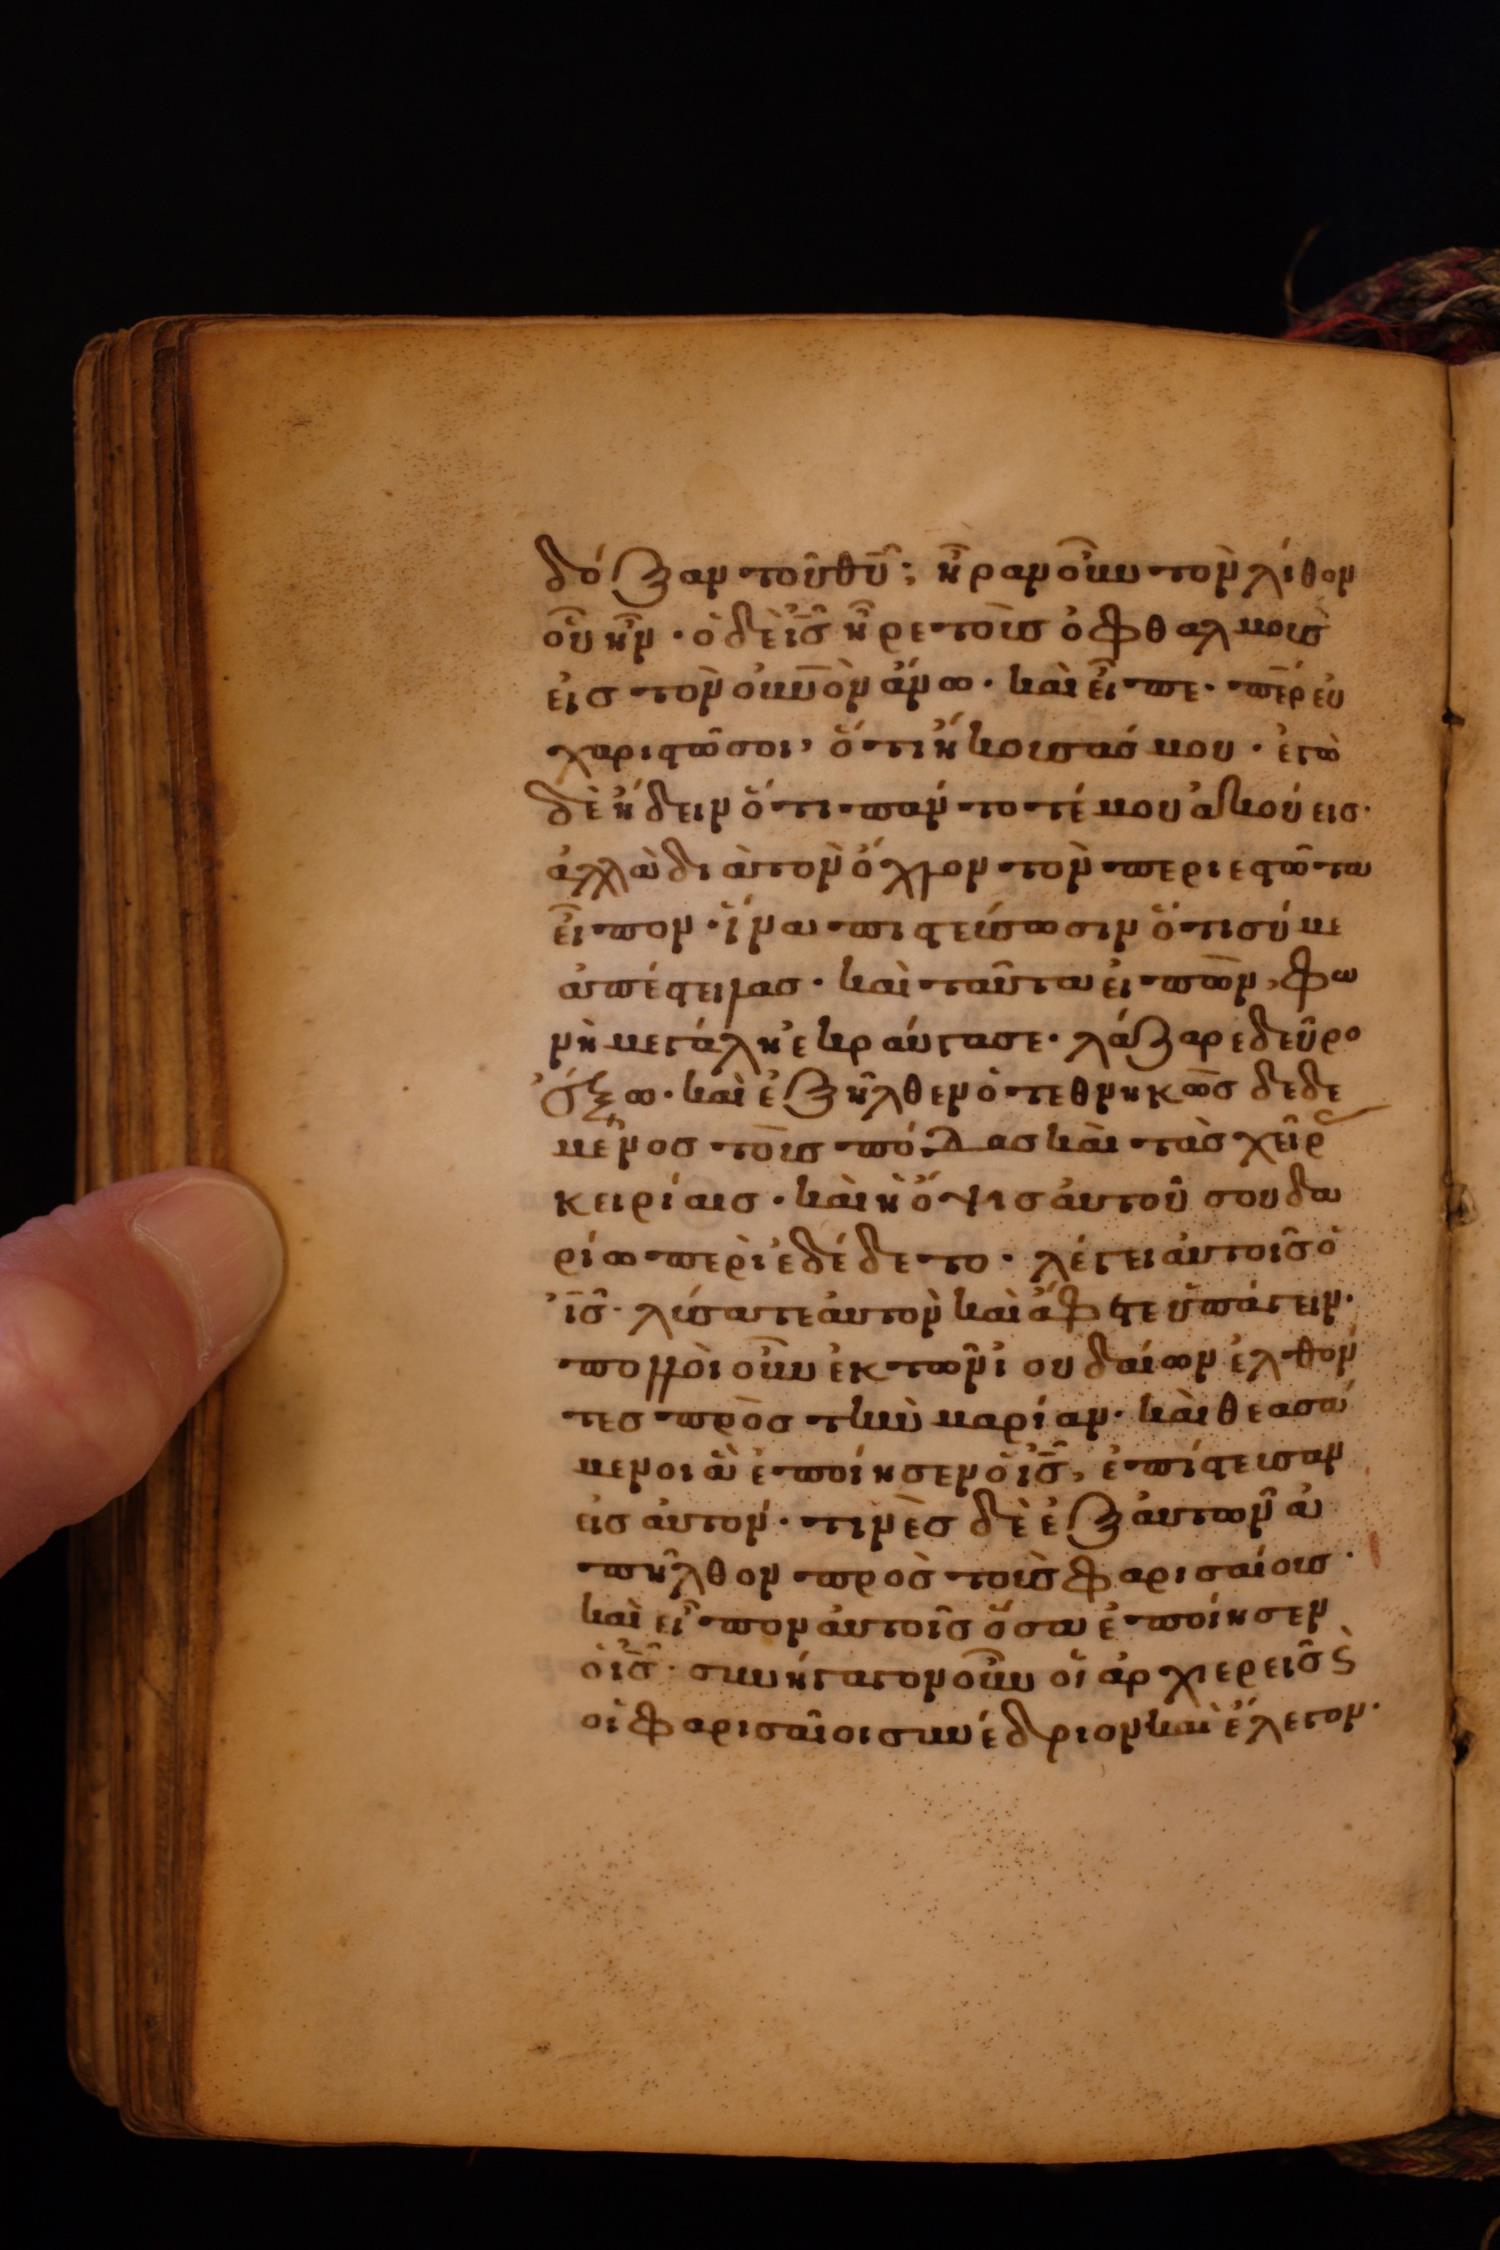 δόξαν τοῦ θῡ; ἦραν οὖν τὸν λίθον
οὗ ἦν· ὁ δὲ ἰς̄ ἦρε τοὺς ὀφθαλμοὺς
εἰς τὸν οὐν̄ὸν ἄνω· καὶ εἶπε· πε̄ρ εὐ
χαριστῶ σοι, ὅτι ἤκουσάς μου· ἐγὼ
δὲ ἤδειν ὅτι πάντοτέ μου ἀκούεις·
ἀλλὰ διὰ τὸν ὄχλον τὸν περιεστῶτα
εἶπον· ἵνα πιστεύσωσιν ὅτι σύ με
ἀπέστειλας· καὶ ταῦτα εἰπὼν, φω
νῆ μεγάλη ἐκραύγασε· λάζαρε δεῦρο
ἔξω· καὶ ἐξῆλθεν ὁ τεθνηκὼς δεδε
μένος τοὺς πόδας καὶ τὰς χεῖρ
κειρίαις· καὶ ἡ ὄψις αὐτοῦ σουδα
ρίω περὶεδέδετο· λέγει αὐτοῖς ὁ
ἰς̄· λύσατε αὐτὸν καὶ ἄφετε ὑπάγειν·
πολλοὶ οὖν ἐκ τῶν ἰουδαίων ἐλθόν
τες πρὸς τὴν μαρίαν· καὶ θεασά
μενοι ἃ ἐποίησεν ὁ ἰς̄, ἐπίστευσαν
εἰς αὐτόν· τινὲς δὲ ἐξ αὐτῶν ἀ
πῆλθον πρὸς τοὺς φαρισαίους·
καὶ εἶπον αὐτοῖς ὅσα ἐποίησεν
ὁ ἰς̄· συνήγαγον οὖν οἱ ἀρχιερεῖς ϗ
οἱ φαρισαῖοι συνέδριον καὶ ἔλεγον·